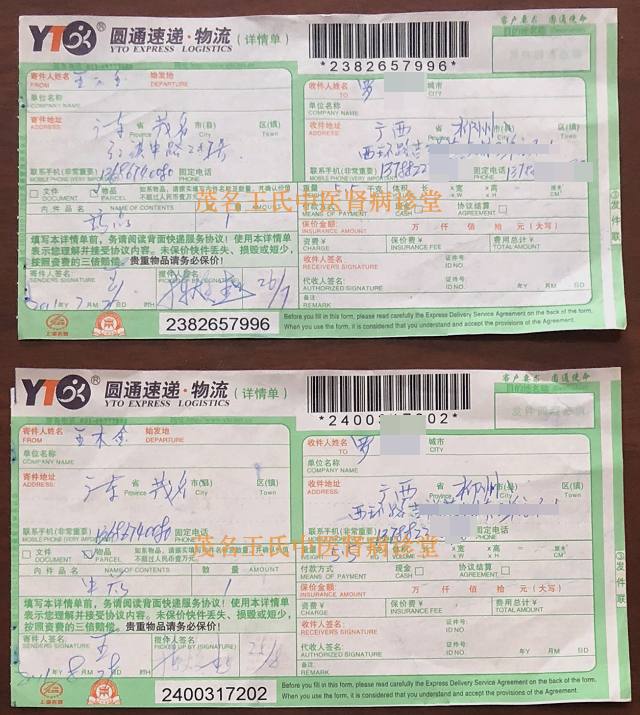 YTO® 圆通速递·物流 (详情单)
YTO EXPRESS LOGISTICS
*2382657996*
客户要求 圆通使命
目的地名称
寄件人姓名 FROM 始发地 DEPARTURE
单位名称 COMPANY NAME
寄件地址 ADDRESS: 广东 省 Province 茂名 市(县) City 区(镇) Town
联系手机(非常重要) 固定电话
MOBILE PHONE(VERY IMPORTANT)
文件 DOCUMENT 物品 PARCEL 如系物品,请据实填写内件名称及数量,并确认价值不超过人民币壹万元。
内件品名 NAME OF CONTENTS 数量 AMOUNT
1
填写本详情单前,务请阅读背面快递服务协议!使用本详情单
表示您理解并接受协议内容。未保价快件丢失、损毁或短少,
按照资费的三倍赔偿。贵重物品请务必保价!
寄件人签名 SENDERS SIGNATURE 王
2382657996
收件人姓名 TO 罗 城市 CITY
单位名称 COMPANY NAME
收件地址 ADDRESS: 广西 省 Province 柳州 市(县) City 区(镇) Town
西环路
联系手机(非常重要) 1378822 固定电话
重量 千克 体积 长 ×W 宽 ×H 高
付款方式 MEANS OF PAYMENT 现金 CASH 协议结算 AGREEMENT
保价金额 INSURANCE AMOUNT 万 仟 佰 拾 元 (大写)
资费¥ CHARGE 保价费¥ INSURANCE FEE 费用总计¥ TOTAL AMOUNT
收件人签名 RECEIVER'S SIGNATURE 证件号: ID NO.
代收人签名 AUTHORIZED SIGNATURE 证件号: ID NO.
年Y 月M 日D 时H
备注 REMARK
Before you fill in this form, please read carefully the Express Delivery Service Agreement on the back of the form.
When you use the form, it is considered that you understand and accept the provisions of the Agreement.
③发件联
茂名王氏中医肾病诊堂
YTO® 圆通速递·物流 (详情单)
YTO EXPRESS LOGISTICS
客户要求 圆通使命
目的地名称
寄件人姓名 FROM 王 始发地 DEPARTURE
单位名称 COMPANY NAME
寄件地址 ADDRESS: 广东 省 Province 茂名 市(县) City 区(镇) Town
联系手机(非常重要) 固定电话
MOBILE PHONE(VERY IMPORTANT)
文件 DOCUMENT 物品 PARCEL 如系物品,请据实填写内件名称及数量,并确认价值不超过人民币壹万元。
内件品名 NAME OF CONTENTS 数量 AMOUNT
1
填写本详情单前,务请阅读背面快递服务协议!使用本详情单
表示您理解并接受协议内容。未保价快件丢失、损毁或短少,
按照资费的三倍赔偿。贵重物品请务必保价!
寄件人签名 SENDERS SIGNATURE 王 揽件人签名 PICKED UP BY (SIGNATURE)
2400317202
收件人姓名 TO 罗 城市 CITY
单位名称 COMPANY NAME
收件地址 ADDRESS: 广西 省 Province 柳州 市(县) City 区(镇) Town
西环路
联系手机(非常重要) 1378822 固定电话 PHONE
付款方式 MEANS OF PAYMENT 现金 CASH 协议结算 AGREEMENT
保价金额 INSURANCE AMOUNT 万 仟 佰 拾 元 (大写)
资费¥ CHARGE 保价费¥ INSURANCE FEE 费用总计¥ TOTAL AMOUNT
收件人签名 RECEIVER'S SIGNATURE 证件号: ID NO.
代收人签名 AUTHORIZED SIGNATURE 证件号: ID NO.
年Y 月M 日D 时H
备注 REMARK
Before you fill in this form, please read carefully the Express Delivery Service Agreement on the back of the form.
When you use the form, it is considered that you understand and accept the provisions of the Agreement.
③发件联
茂名王氏中医肾病诊堂